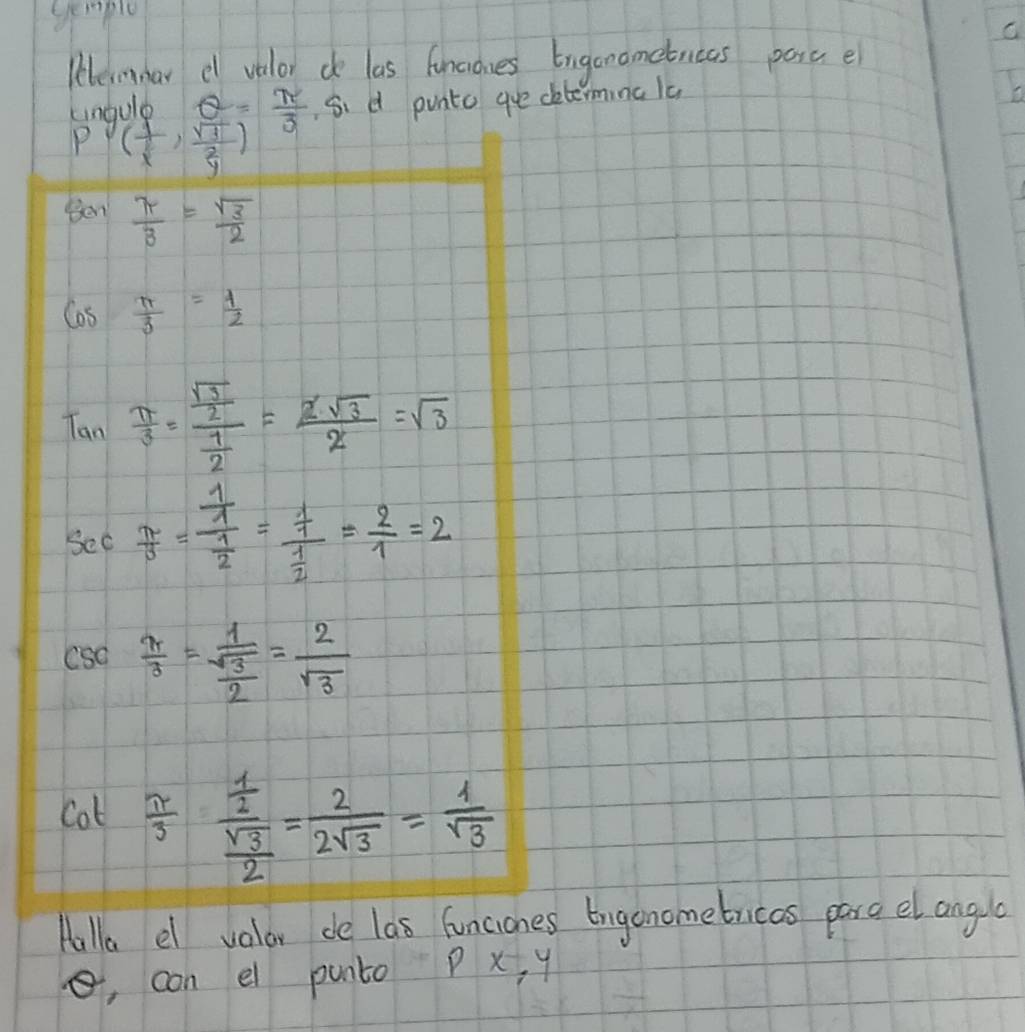 Ejemplo
Determinar el valor de las funciones trigonometricas para el
angulo θ = π/3. Si el punto que determina la
P (1/x, √3/2 y)
Sen π/3 = √3/2
Cos π/3 = 1/2
Tan π/3 = (√3/2)/(1/2) = 2·√3/2 = √3
Sec π/3 = (1/1)/(1/2) = (1/1)/(1/2) = 2/1 = 2
csc π/3 = 1/(√3/2) = 2/√3
Cot π/3 (1/2)/(√3/2) = 2/2√3 = 1/√3
Halla el valor de las funciones trigonometricas para el angulo
θ, con el punto P x, y